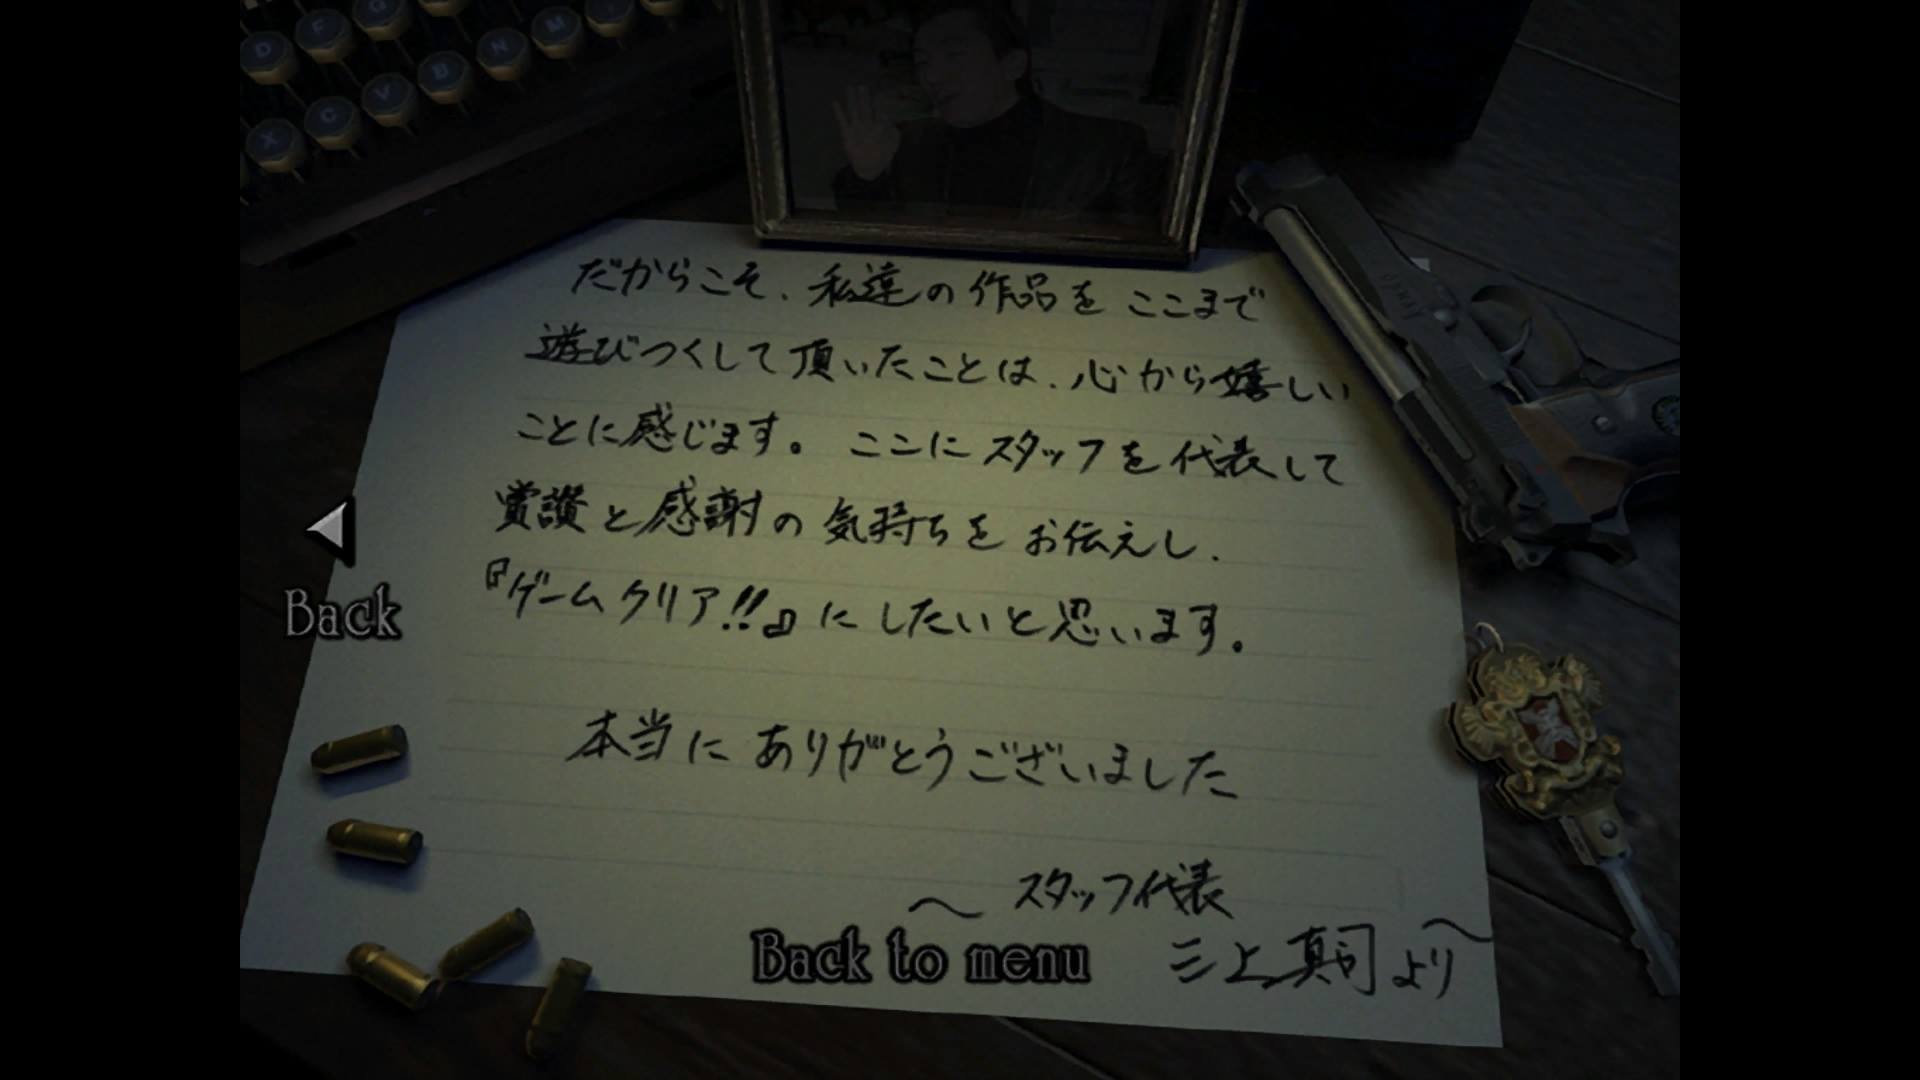 D F G
X C V B N M
だからこそ、私達の作品をここまで
遊びつくして頂いたことは、心から嬉しい
ことに感じます。ここにスタッフを代表して
賞讃と感謝の気持ちをお伝えし、
『ゲームクリア!!』にしたいと思います。
本当にありがとうございました
〜スタッフ代表
三上真司より〜
Back
Back to menu